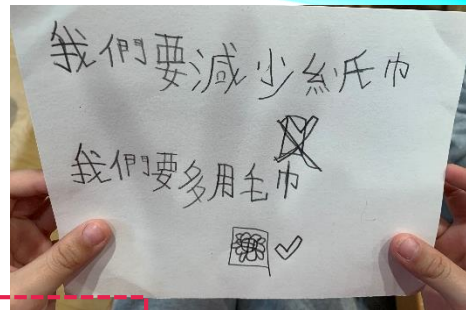 我們要減少紙巾
我們要多用毛巾